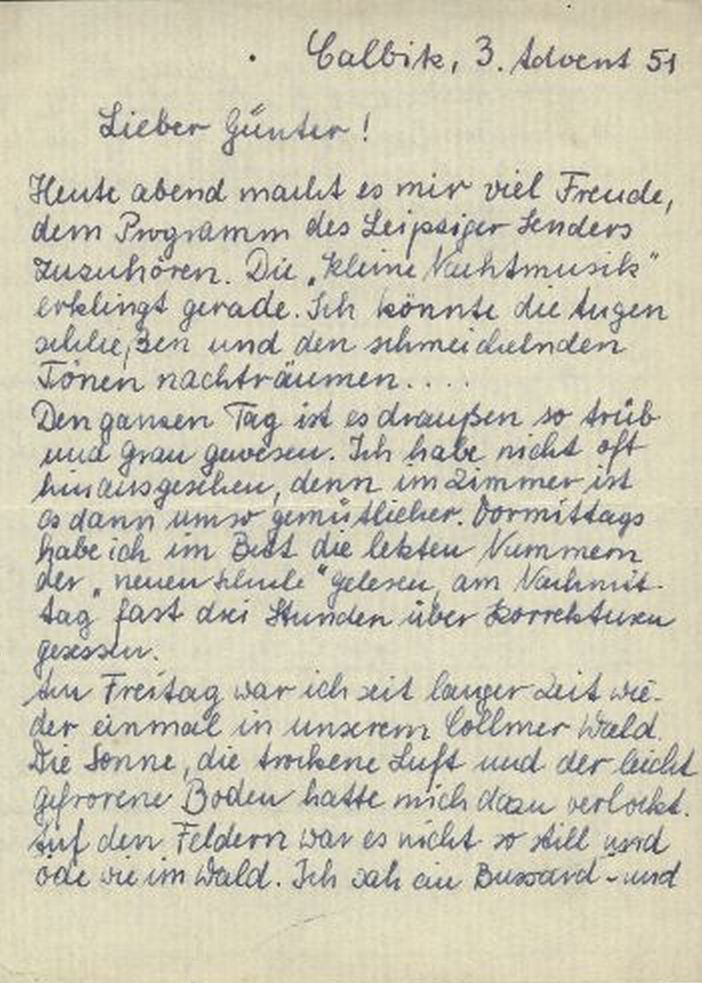 Calbitz, 3. Advent 51
Lieber Günter!
Heute abend macht es mir viel Freude,
dem Programm des Leipziger Senders
zuzuhören. Die „kleine Nachtmusik“
erklingt gerade. Ich könnte die Augen
schließen und den schmeichelnden
Tönen nachträumen....
Den ganzen Tag ist es draußen so trüb
und grau gewesen. Ich habe nicht oft
hinausgesehen, denn im Zimmer ist
es dann umso gemütlicher. Vormittags
habe ich im Bett die letzten Nummern
der „neuen Schule“ gelesen, am Nachmit-
tag fast drei Stunden über Korrekturen
gesessen.
Am Freitag war ich seit langer Zeit wie-
der einmal in unserem Collmer Wald.
Die Sonne, die trockene Luft und der leicht
gefrorene Boden hatte mich dazu verlockt.
Auf den Feldern war es nicht so still und
öde wie im Wald. Ich sah ein Bussard- und